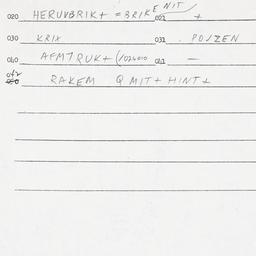 020 HERUVBRIK+ = BRIKENIT 021 +
030 KRIX 031 . POJZEN
040 AFMTRUK+ (1024010 041 —
042 RAKEM Q MIT+ HINT+